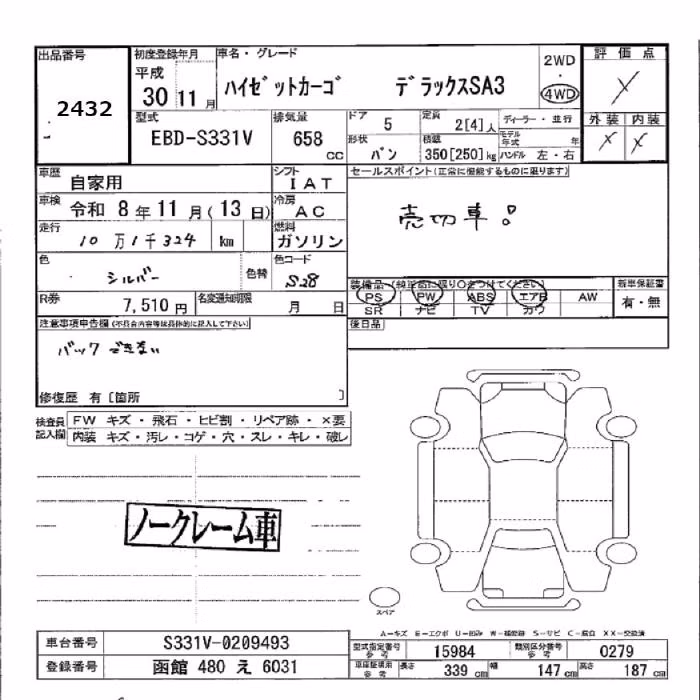 出品番号 初度登録年月 車名・グレード 2WD 評価点
平成 ・
2432 30 11月 ハイゼットカーゴ デラックスSA3 4WD
型式 排気量 ドア 5 定員 2[4]人 ディーラー・並行 外装 内装
EBD-S331V 658 CC 形状 バン 積載 350[250]kg モデル年式 年 ハンドル 左・右
車歴 自家用 シフト IAT セールスポイント(正常に機能するものに限ります)
車検 令和 8年 11月(13日) 冷房 AC 売切車!
走行 10万1千324 km 燃料 ガソリン
色 シルバー 色替 色コード S28
装備品(純正品に限り○をつけてください) 新車保証書
R券 7,510円 名変通知期限 月 日 PS PW ABS エアB AW 有・無
SR ナビ TV カワ
注意事項申告欄(不具合内容等は具体的に記入して下さい) 後日品
バックできない
修復歴 有[箇所 ]
検査員記入欄 FW キズ・飛石・ヒビ割・リペア跡・×要
内装 キズ・汚レ・コゲ・穴・スレ・キレ・破レ
ノークレーム車
スペア
A-キズ E-エクボ U-凹み W-補修跡 S-サビ C-腐食 XX-交換済
車台番号 S331V-0209493 型式指定番号 参考 15984 類別区分番号 参考 0279
登録番号 函館 480 え 6031 車庫証明用 参考 長さ 339cm 幅 147cm 高さ 187cm